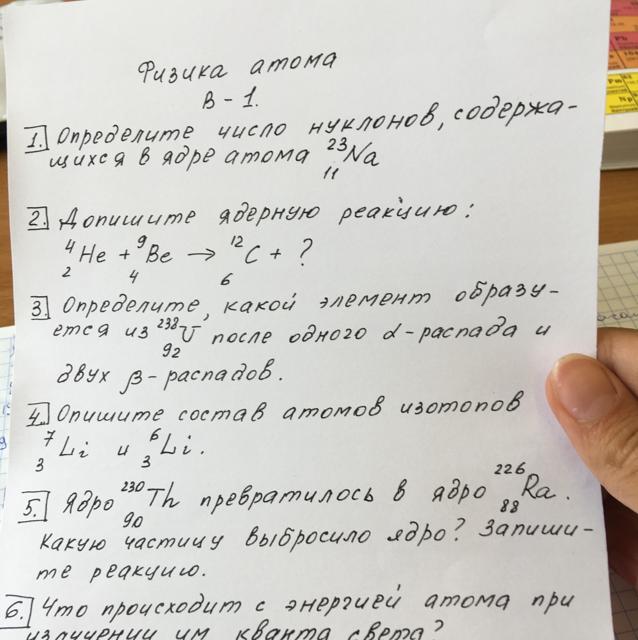 Физика атома
В-1.
1. Определите число нуклонов, содержа-
щихся в ядре атома ²³₁₁Na
2. Допишите ядерную реакцию:
⁴₂He + ⁹₄Be → ¹²₆C + ?
3. Определите, какой элемент образу-
ется из ²³⁸₉₂U после одного α-распада и
двух β-распадов.
4. Опишите состав атомов изотопов
⁷₃Li и ⁶₃Li.
5. Ядро ²³⁰₉₀Th превратилось в ядро ²²⁶₈₈Ra.
Какую частицу выбросило ядро? Запиши-
те реакцию.
6. Что происходит с энергией атома при
излучении им кванта света?
Pb
Pm
Np